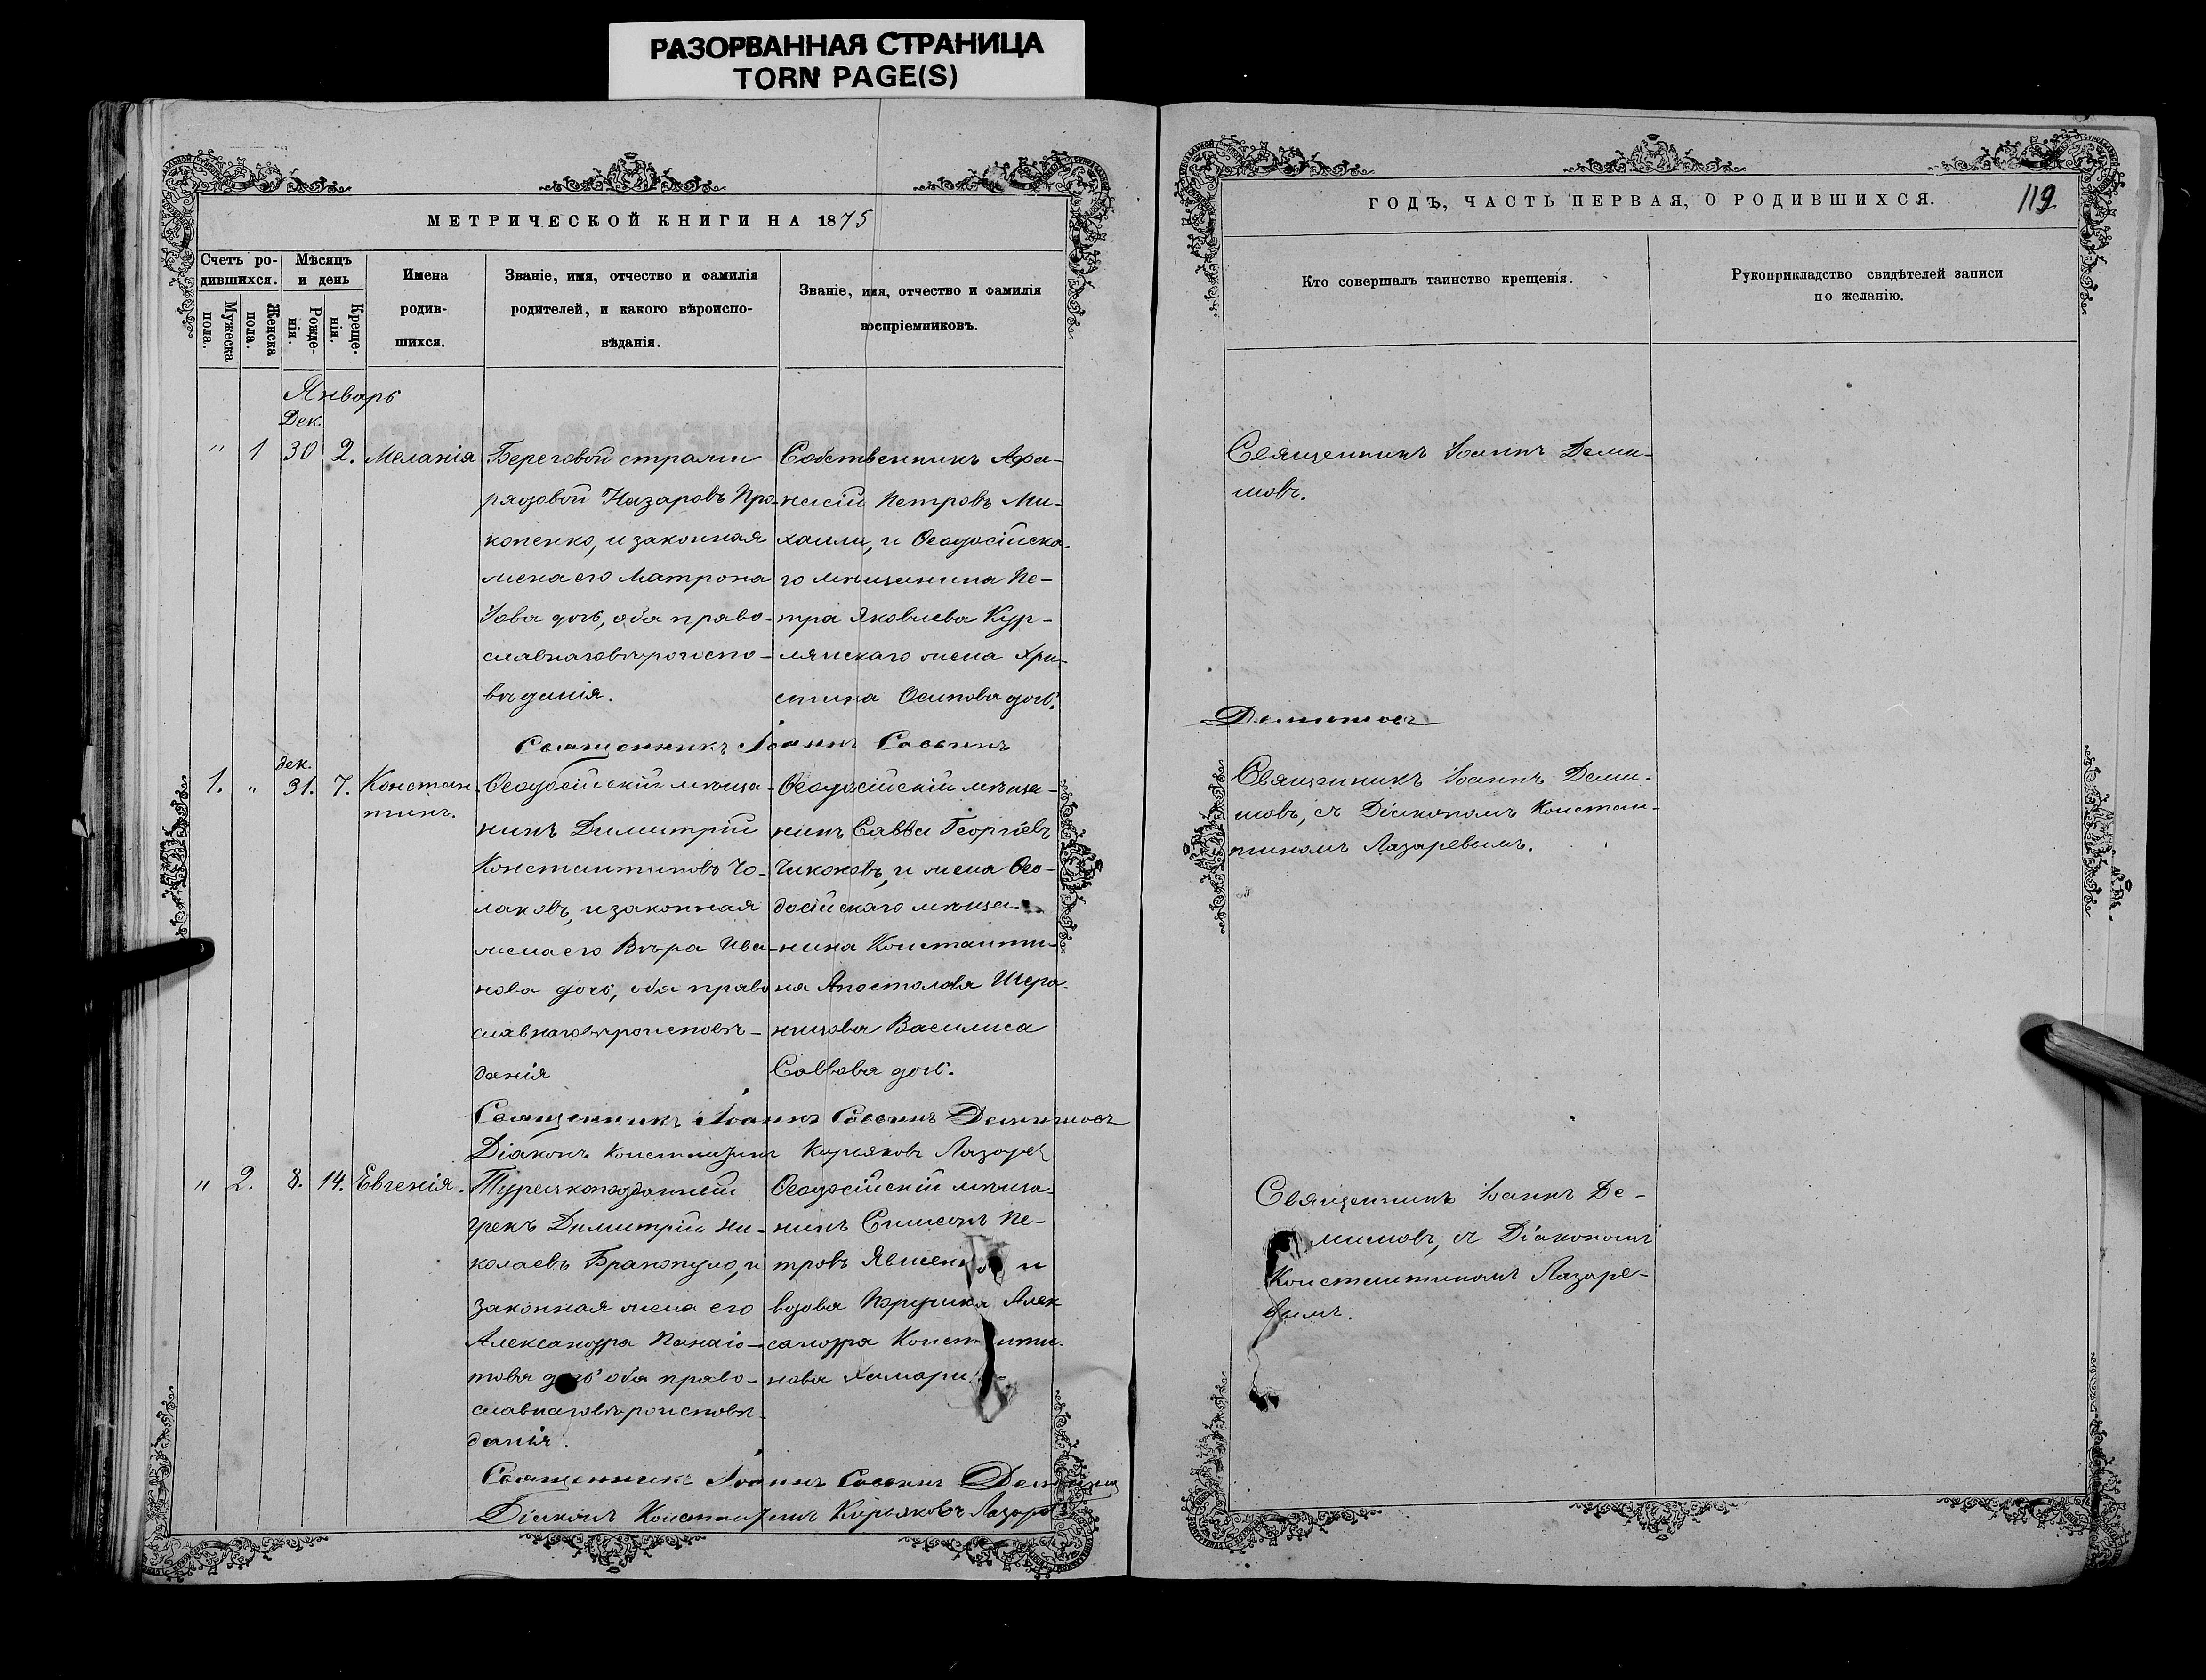 РАЗОРВАННАЯ СТРАНИЦА
TORN PAGE(S)
МЕТРИЧЕСКОЙ КНИГИ НА 1875
Счетъ ро-
дившихся.
Мѣсяцъ
и день
Мужеска
пола.
Женска
пола.
Рожде-
нія.
Креще-
нія.
Имена
родив-
шихся.
Званіе, имя, отчество и фамилія
родителей, и какого вѣроиспо-
вѣданія.
Званіе, имя, отчество и фамилія
воспріемниковъ.
Январь
Дек.
" 1 30 2. Меланія
Береговой стражи
рядовой Назаровъ Про-
копенко, и законная
жена его Матрона
Іова дочь, оба право-
славнаго вѣроиспо-
вѣданія.
Собственникъ Афа-
насій Петровъ Ми-
хаили, и Ѳеодосійска-
го мѣщанина Пе-
тра Яковлева Кур-
лянскаго жена Хри-
стина Осипова дочь.
Священникъ Іоаннъ Саввинъ
дек.
1. " 31. 7. Констан-
тинъ.
Ѳеодосійскій мѣща-
нинъ Димитрій
Константиновъ Чо-
лаковъ, и законная
жена его Вѣра Ива-
нова дочь, оба право
славнаго вѣроисповѣ-
данія
Ѳеодосійскій мѣща-
нинъ Савва Георгіевъ
Чикоковъ, и жена Ѳео-
досійскаго мѣща-
нина Константи-
на Апостолова Шера-
ницова Василиса
Саввова дочь.
Священникъ Іоаннъ Саввинъ Демишовъ
Діаконъ Константинъ Кирьяковъ Лазаре
" 2. 8. 14. Евгенія.
Турецкоподданный
грекъ Димитрій Ни-
колаевъ Бранопуло, и
законная жена его
Александра Панаіо-
това дочь оба право-
славнаго вѣроисповѣ-
данія.
Ѳеодосійскій мѣща-
нинъ Симеонъ Пе-
тровъ и
вдова Алек
сандра Конст нти-
нова
Священникъ Іоаннъ Саввинъ
Діаконъ Константинъ Кирьяковъ Лазаре
ГОДЪ, ЧАСТЬ ПЕРВАЯ, О РОДИВШИХСЯ.
119
Кто совершалъ таинство крещенія.
Рукоприкладство свидѣтелей записи
по желанію.
Священникъ Іоаннъ Деми-
шовъ.
Демишовъ
Священникъ Іоаннъ Деми-
шовъ, съ Діакономъ Констан-
тиномъ Лазаревымъ.
Священникъ Іоаннъ Де-
мишовъ, съ Діакономъ
Константиномъ Лазаре-
вымъ.